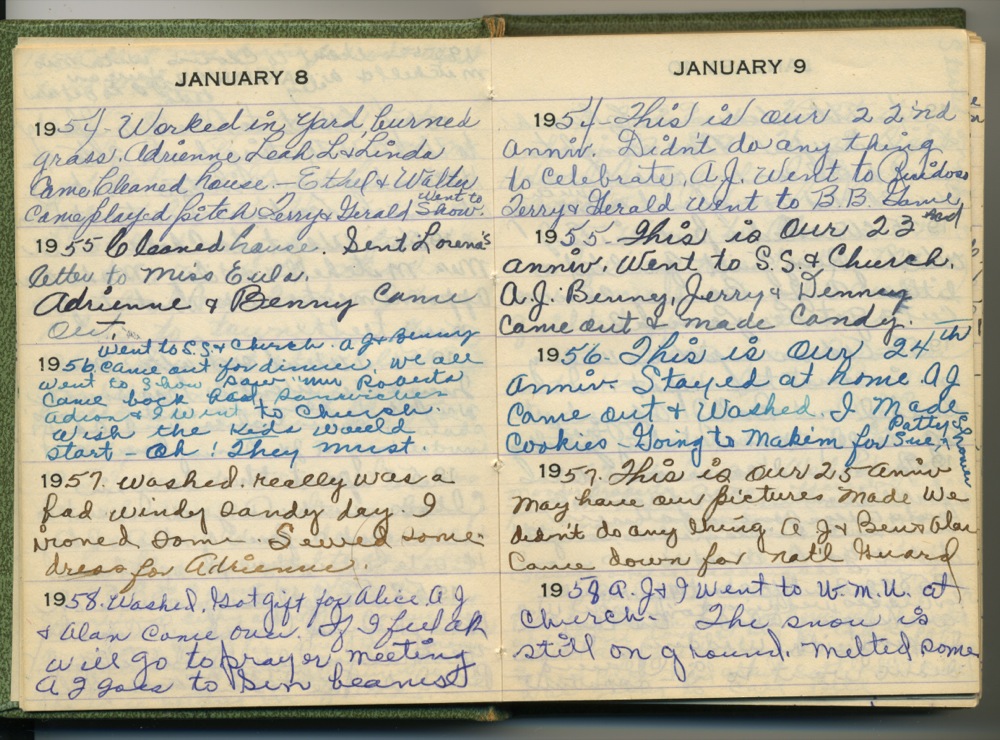 JANUARY 8
1954 - Worked in yard, burned
grass. Adrienne Leah L & Linda
Came Cleaned house. - Ethel & Walter
Came played pitch Jerry & Gerald went to Show.
1955 Cleaned house. Sent Lorena's
letter to Miss Eula.
Adrienne & Benny Came
out.
1956 Went to S.S. & Church. A J & Benny
Came out for dinner. We all
went to Show Saw "Mr Roberts
Came back had sandwiches
& I went to Church.
Wish the kids would
start - Oh! They must.
1957. Washed. really was a
bad windy sandy day. I
ironed some. Sewed some.
dress for Adrienne.
1958. Washed. Got gift for Alice. A J
& Alan Came over. If I feel ok
will go to prayer meeting
A J goes to
JANUARY 9
1954 - This is our 22'nd
anniv. Didn't do any thing
to celebrate. A.J. Went to Ruidoso
Jerry & Gerald Went to B.B. Game
1955 - This is Our 23rd
anniv. Went to S.S. & Church.
A.J. Benny, Jerry & Denny
Came out & made Candy.
1956. This is Our 24th
Anniv. Stayed at home. A J
Came out & Washed. I Made
Cookies - Going to Makem for Patty Sue Shower
1957. This is our 25 Anniv
May have our pictures Made We
didn't do any thing A J & Ben & Alan
Came down for nat'l Guard
1958 A. J & I Went to W.M.U. at
Church. The snow is
still on ground. Melted some